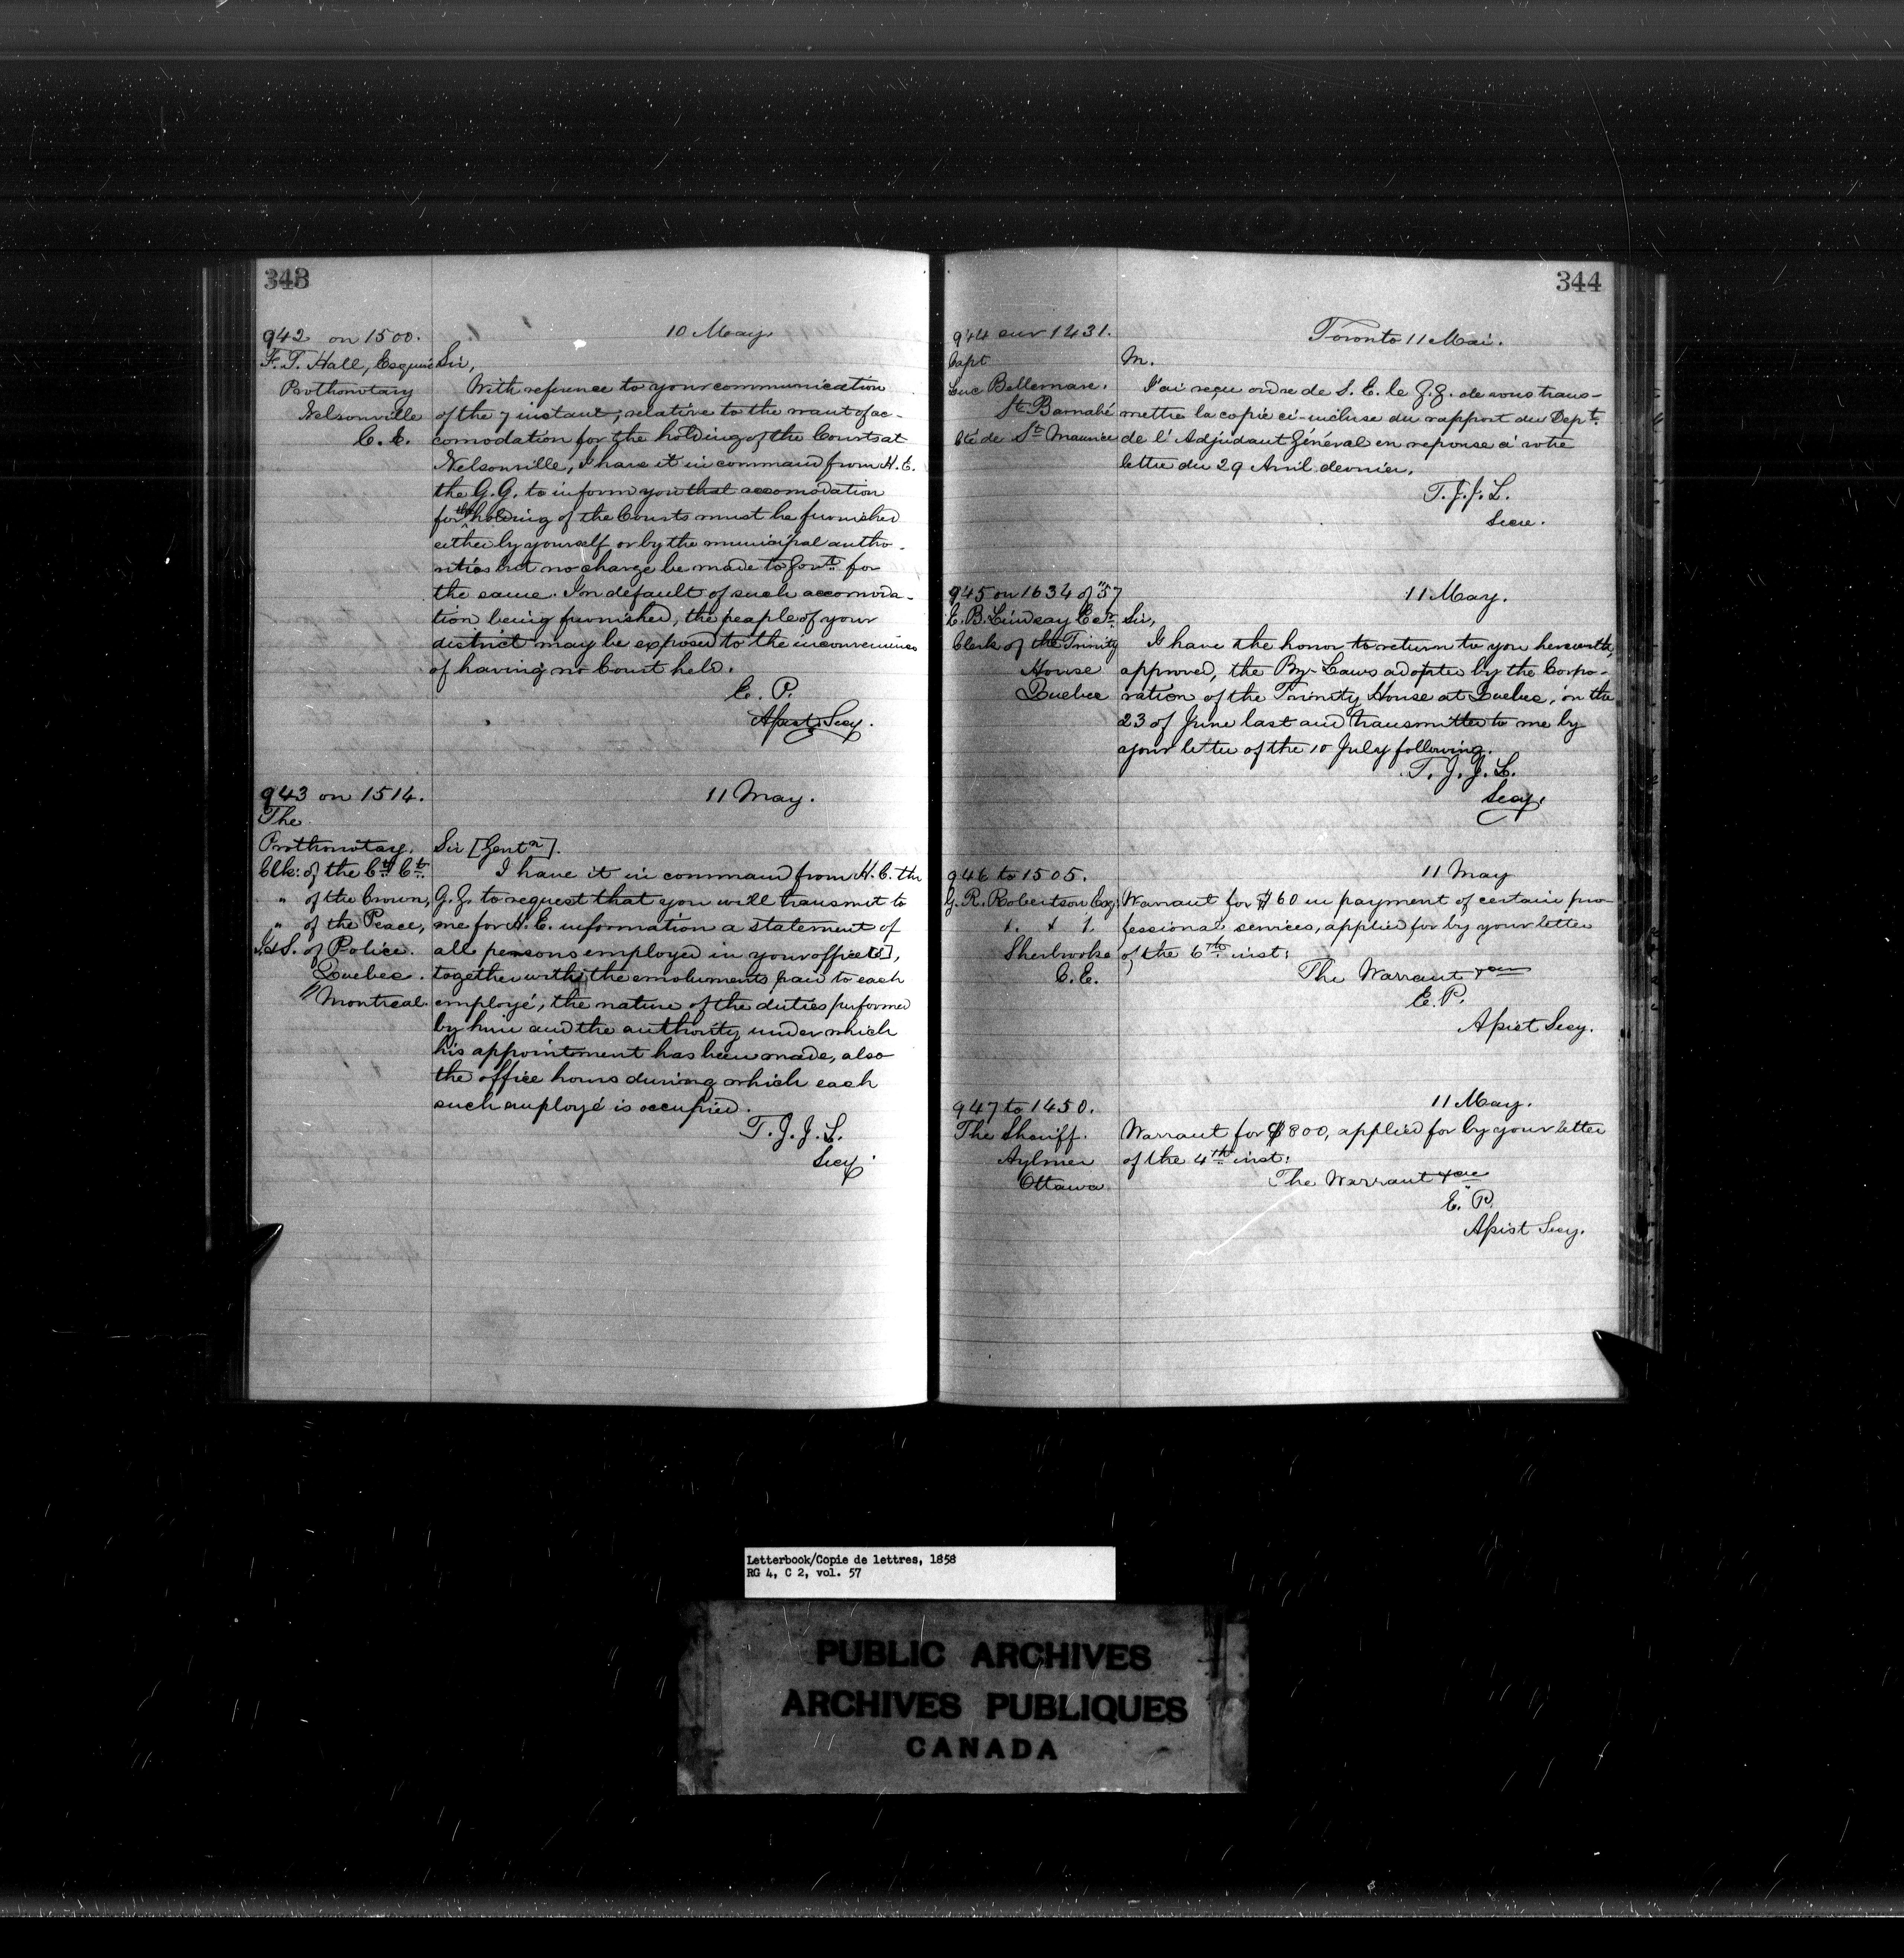 343
942 on 1500.
10 May
F. T. Hall, Esquire
Prothonotary
Nelsonville
C. E.
Sir,
With refrence to your communication
of the 7 instant; relative to the want of ac-
comodation for the holding of the Courts at
Nelsonville, I have it in command from H. E.
the G. G. to inform you that accomodation
for the holding of the Courts must be furnished
either by yourself or by the municipal autho-
rities but no charge be made to Govt. for
the same. In default of such accomoda-
tion being furnished, the people of your
district may be exposed to the inconvenience
of having no Court held.
E. P.
Assist Secy.
943 on 1514.
11 May.
The
Prothonotary.
Clk: of the Ct. Ct.
" of the Crown,
" of the Peace,
I. & S. of Police.
Quebec.
" Montreal.
Sir [Gentn].
I have it in command from H. E. the
G. G. to request that you will transmit to
me for H. E. information a statement of
all persons employed in your office [s],
together with the emoluments paid to each
employé, the nature of the duties performed
by him and the authority under which
his appointment has been made, also
the office hours during which each
such employé is occupied.
T. J. J. L.
Secy.
344
944 sur 1431.
Toronto 11 Mai.
Capt
Luc Bellemare.
St. Barnabé
Cté de St. Maurice
M.
J'ai reçu ordre de S. E. le G. G. de vous trans-
mettre la copie ci-incluse du rapport du Dept.
de l'Adjudant Général en reponse à votre
lettre du 29 Avril dernier.
T. J. J. L.
Secre.
945 on 1634 of "57
11 May.
E. B. Lindsay Esr.
Clerk of the Trinity
House
Quebec
Sir,
I have the honor to return to you herewith,
approved, the By-Laws adopted by the Corpo-
ration of the Trinity House at Quebec, on the
23 of June last and transmitted to me by
your letter of the 10 July following.
T. J. J. L.
Secy.
946 to 1505.
11 May
G. R. Robertson Esq:
Sherbrooke
C. E.
Warrant for $160 in payment of certain pro-
fessional services, applied for by your letter
of the 6th inst:
The Warrant
E. P.
Assist Secy.
947 to 1450.
11 May.
The Sheriff.
Aylmer
Ottawa
Warrant for $800, applied for by your letter
of the 4th inst:
The Warrant
E. P.
Assist Secy.
Letterbook/Copie de lettres, 1858
RG 4, C 2, vol. 57
PUBLIC ARCHIVES
ARCHIVES PUBLIQUES
CANADA